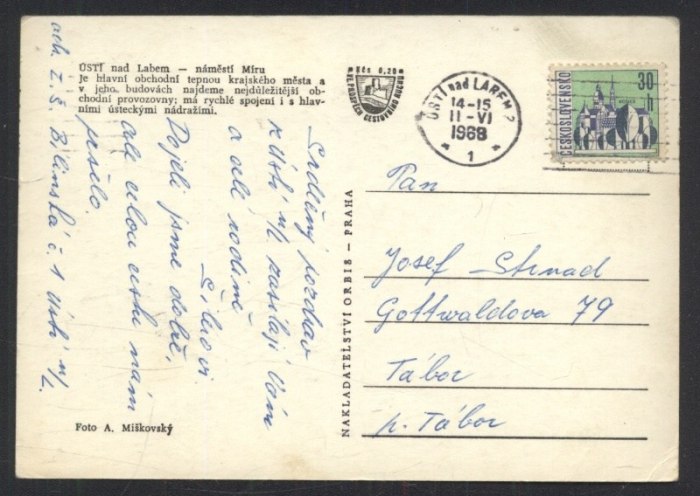 ÚSTÍ nad Labem — náměstí Míru
Je hlavní obchodní tepnou krajského města a
v jeho budovách najdeme nejdůležitější ob-
chodní provozovny; má rychlé spojení i s hlav-
ními ústeckými nádražími.
Kčs 0,20
VE PROSPĚCH CESTOVNÍHO RUCHU
ÚSTÍ nad LABEM 2
14-15
11-VI
1968
* 1 *
ČESKOSLOVENSKO
30 h
Srdečný pozdrav
z Ústí n/L zasílají Vám
a celé rodině
Dojeli jsme dobře,
ale celou cestu nám
pršelo.
Z. Š. Bílinská č. 1 Ústí n/L.
Pan
Josef Strnad
Gottwaldova 79
Tábor
p. Tábor
NAKLADATELSTVÍ ORBIS — PRAHA
Foto A. Miškovský